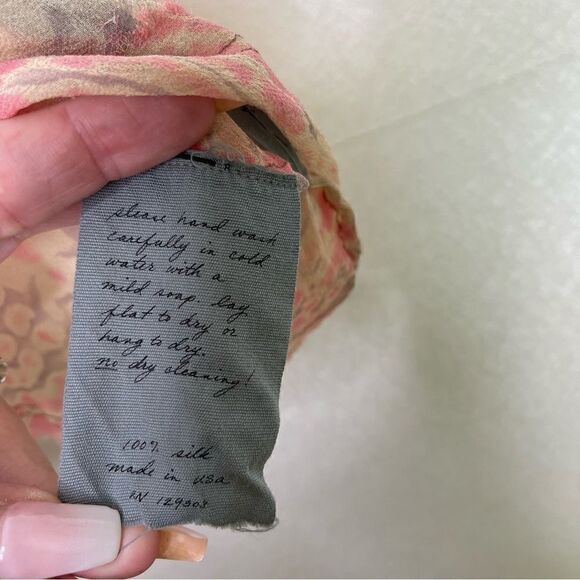 please hand wash
carefully in cold
water with a
mild soap. lay
flat to dry or
hang to dry.
no dry cleaning!
100% silk
made in usa
RN 129508